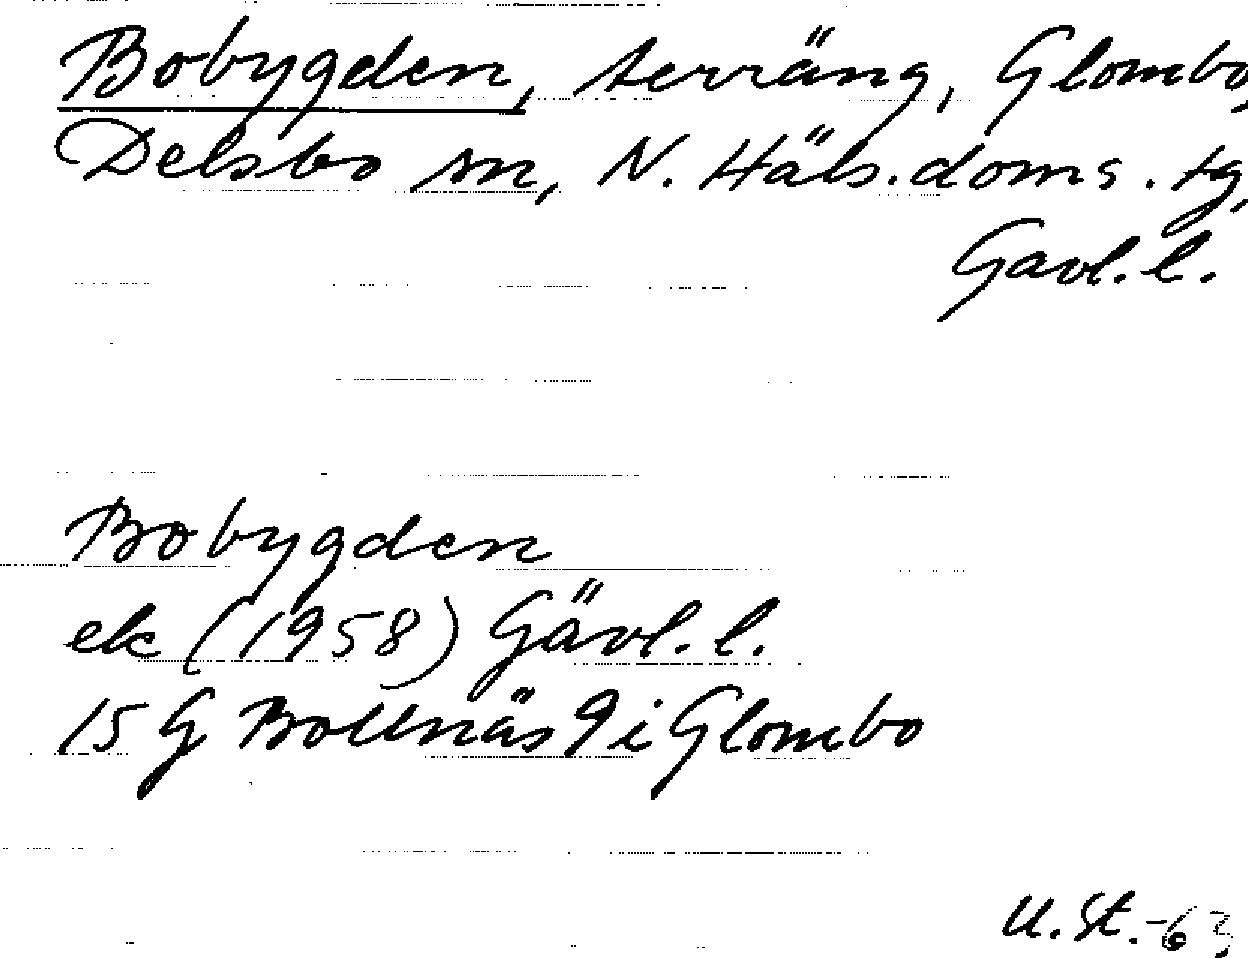 Bobygden, terräng, Glombo,
Delsbo sn, N. Häls. doms. tg,
Gävl. l.
Bobygden
ek (1958) Gävl. l.
15 G Bollnäs 9 i Glombo
U. St. -63